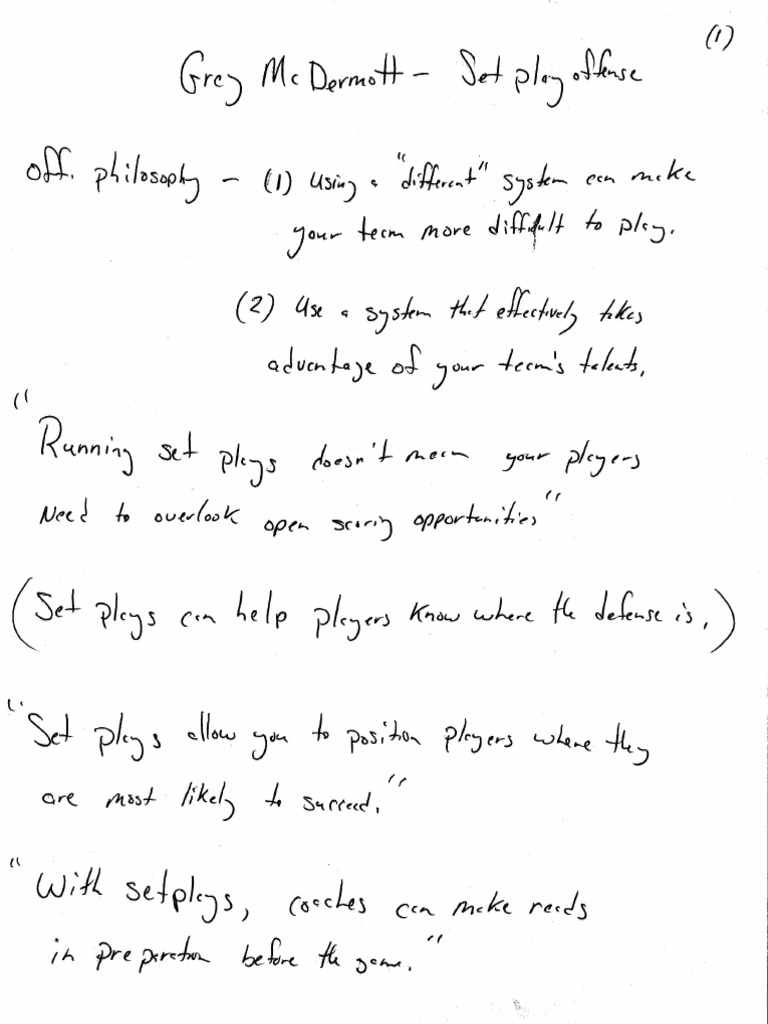 (1)
Greg McDermott - Set play offense
Off. philosophy - (1) Using a "different" system can make
your team more difficult to play.
(2) Use a system that effectively takes
advantage of your team's talents.
"Running set plays doesn't mean your players
Need to overlook open scoring opportunities"
(Set plays can help players know where the defense is.)
"Set plays allow you to position players where they
are most likely to succeed."
"With set plays, coaches can make reads
in preparation before the game."